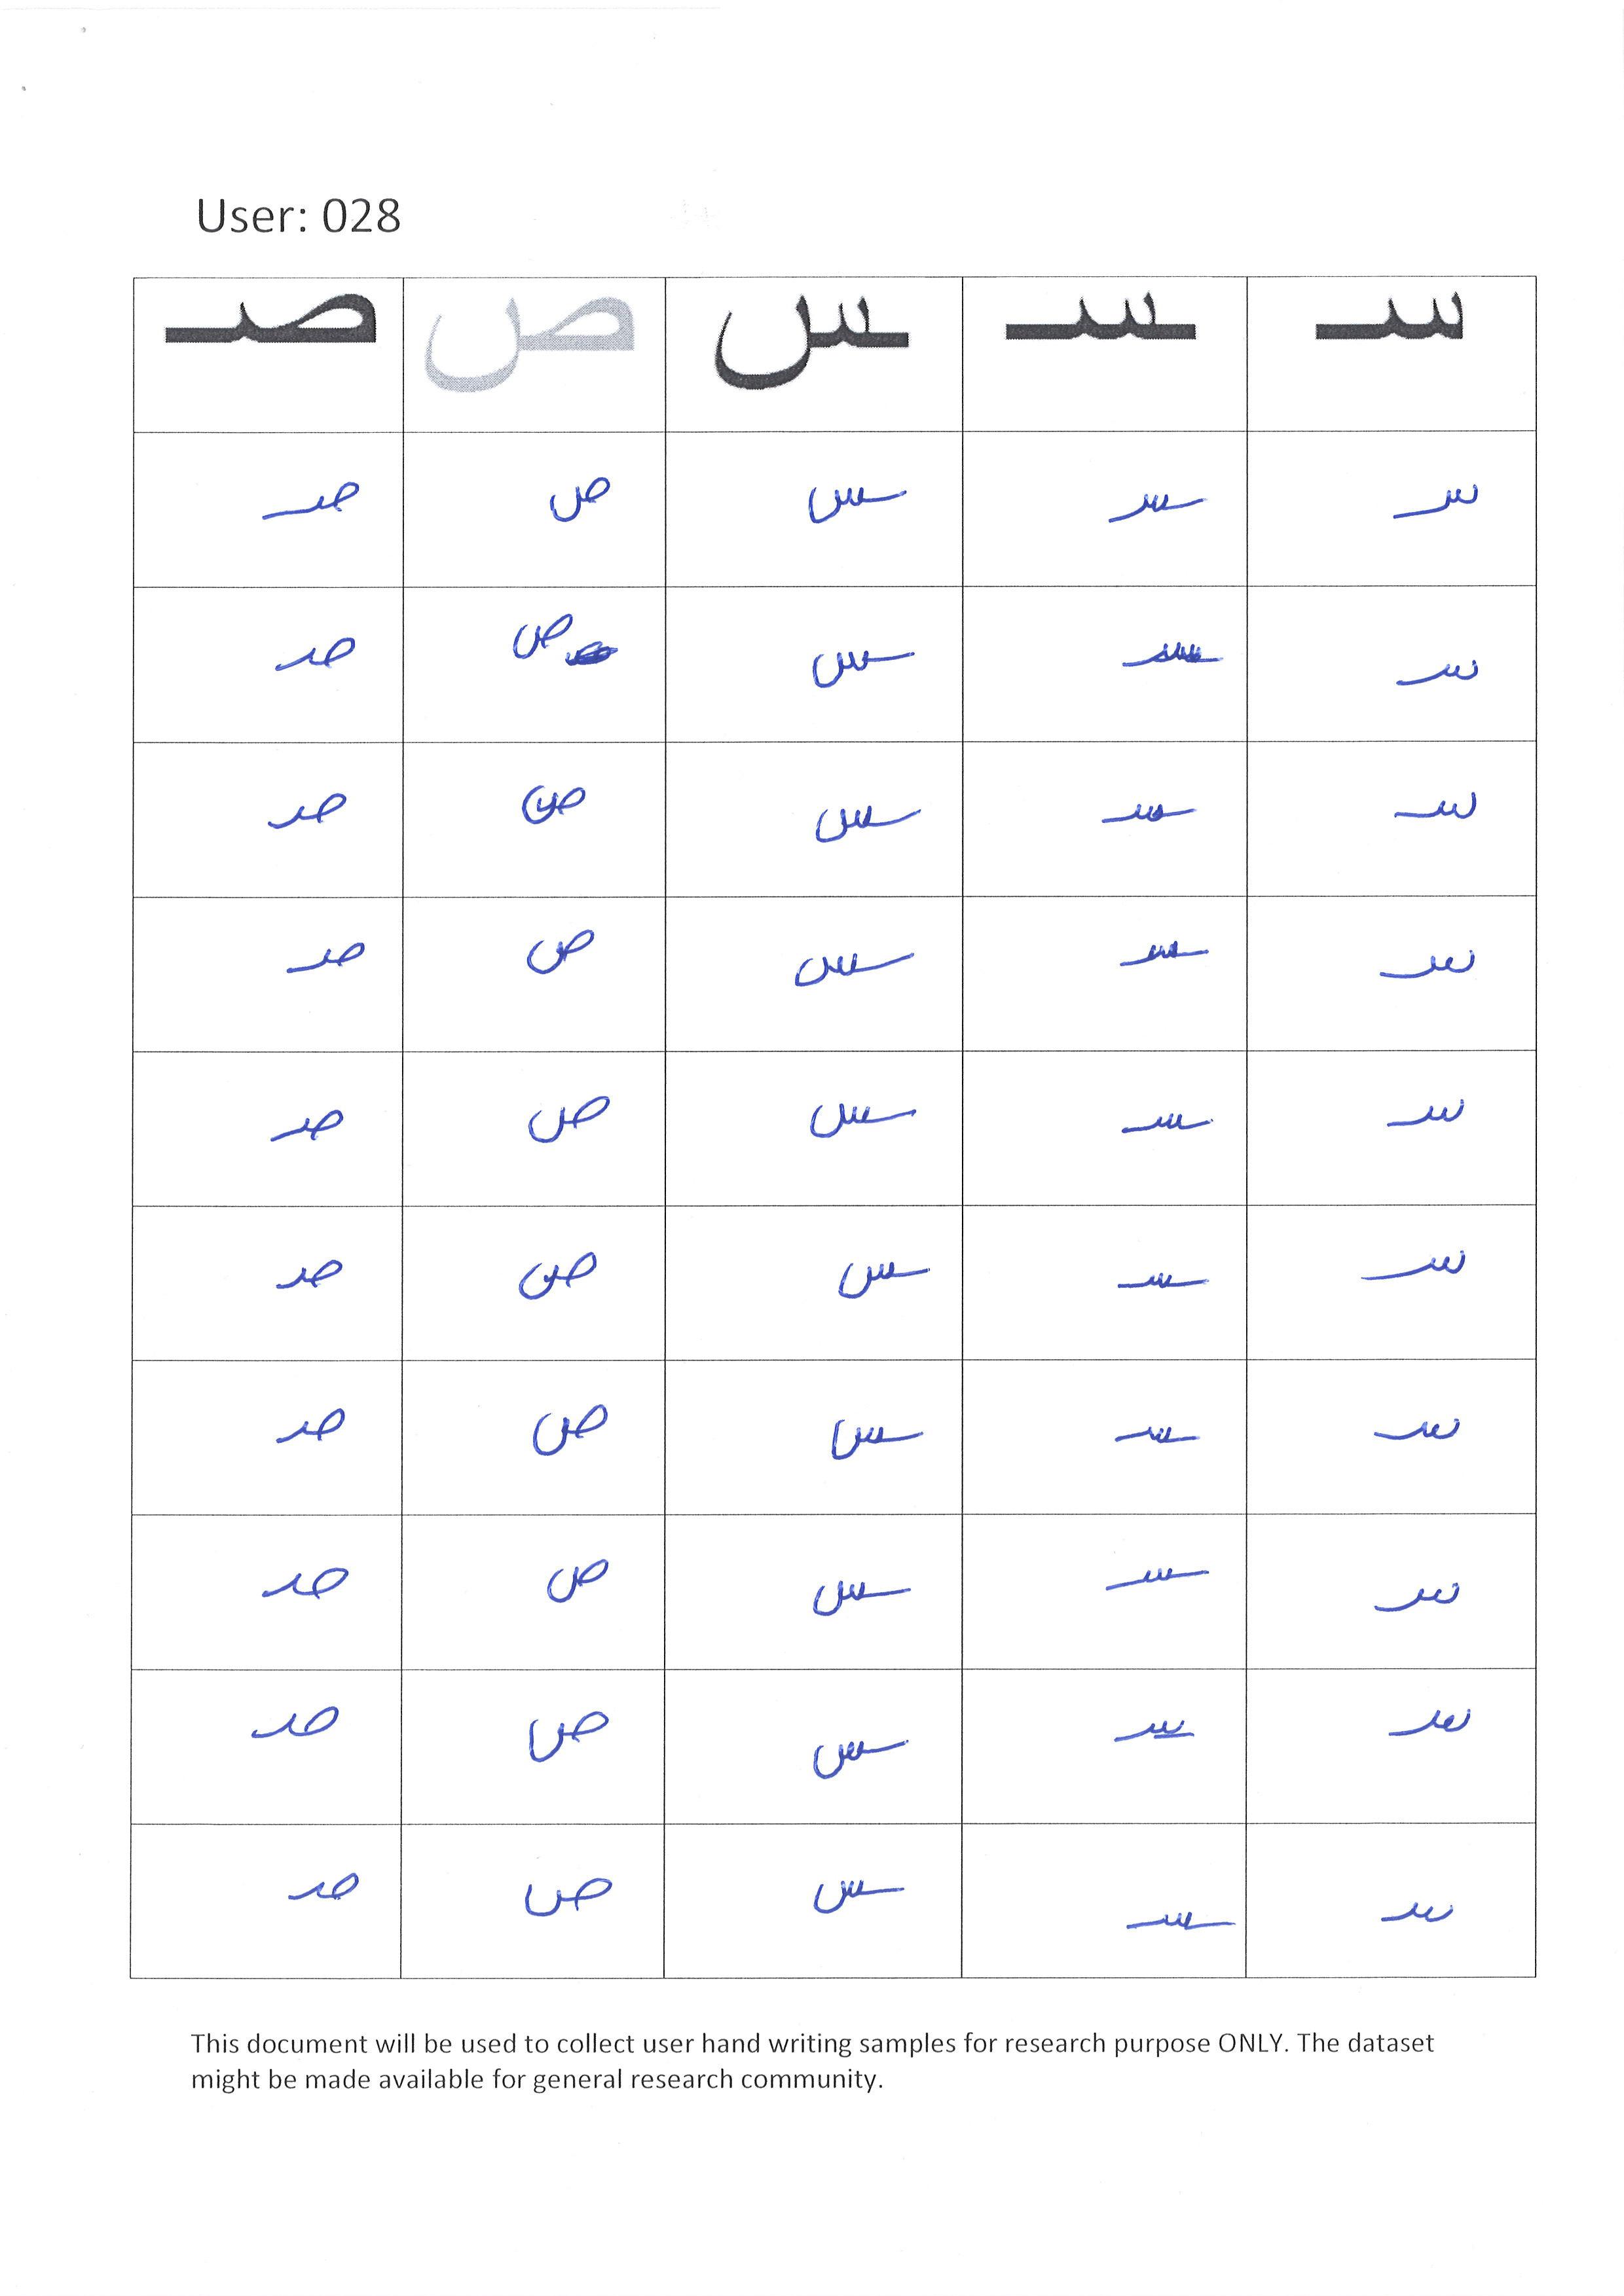 User: 028
سـ ـسـ ـس ص صـ
سـ ـسـ ـس ص صـ
سـ ـسـ ـس ص صـ
سـ ـسـ ـس ص صـ
سـ ـسـ ـس ص صـ
سـ ـسـ ـس ص صـ
سـ ـسـ ـس ص صـ
سـ ـسـ ـس ص صـ
سـ ـسـ ـس ص صـ
سـ ـسـ ـس ص صـ
سـ ـسـ ـس ص صـ
This document will be used to collect user hand writing samples for research purpose ONLY. The dataset
might be made available for general research community.